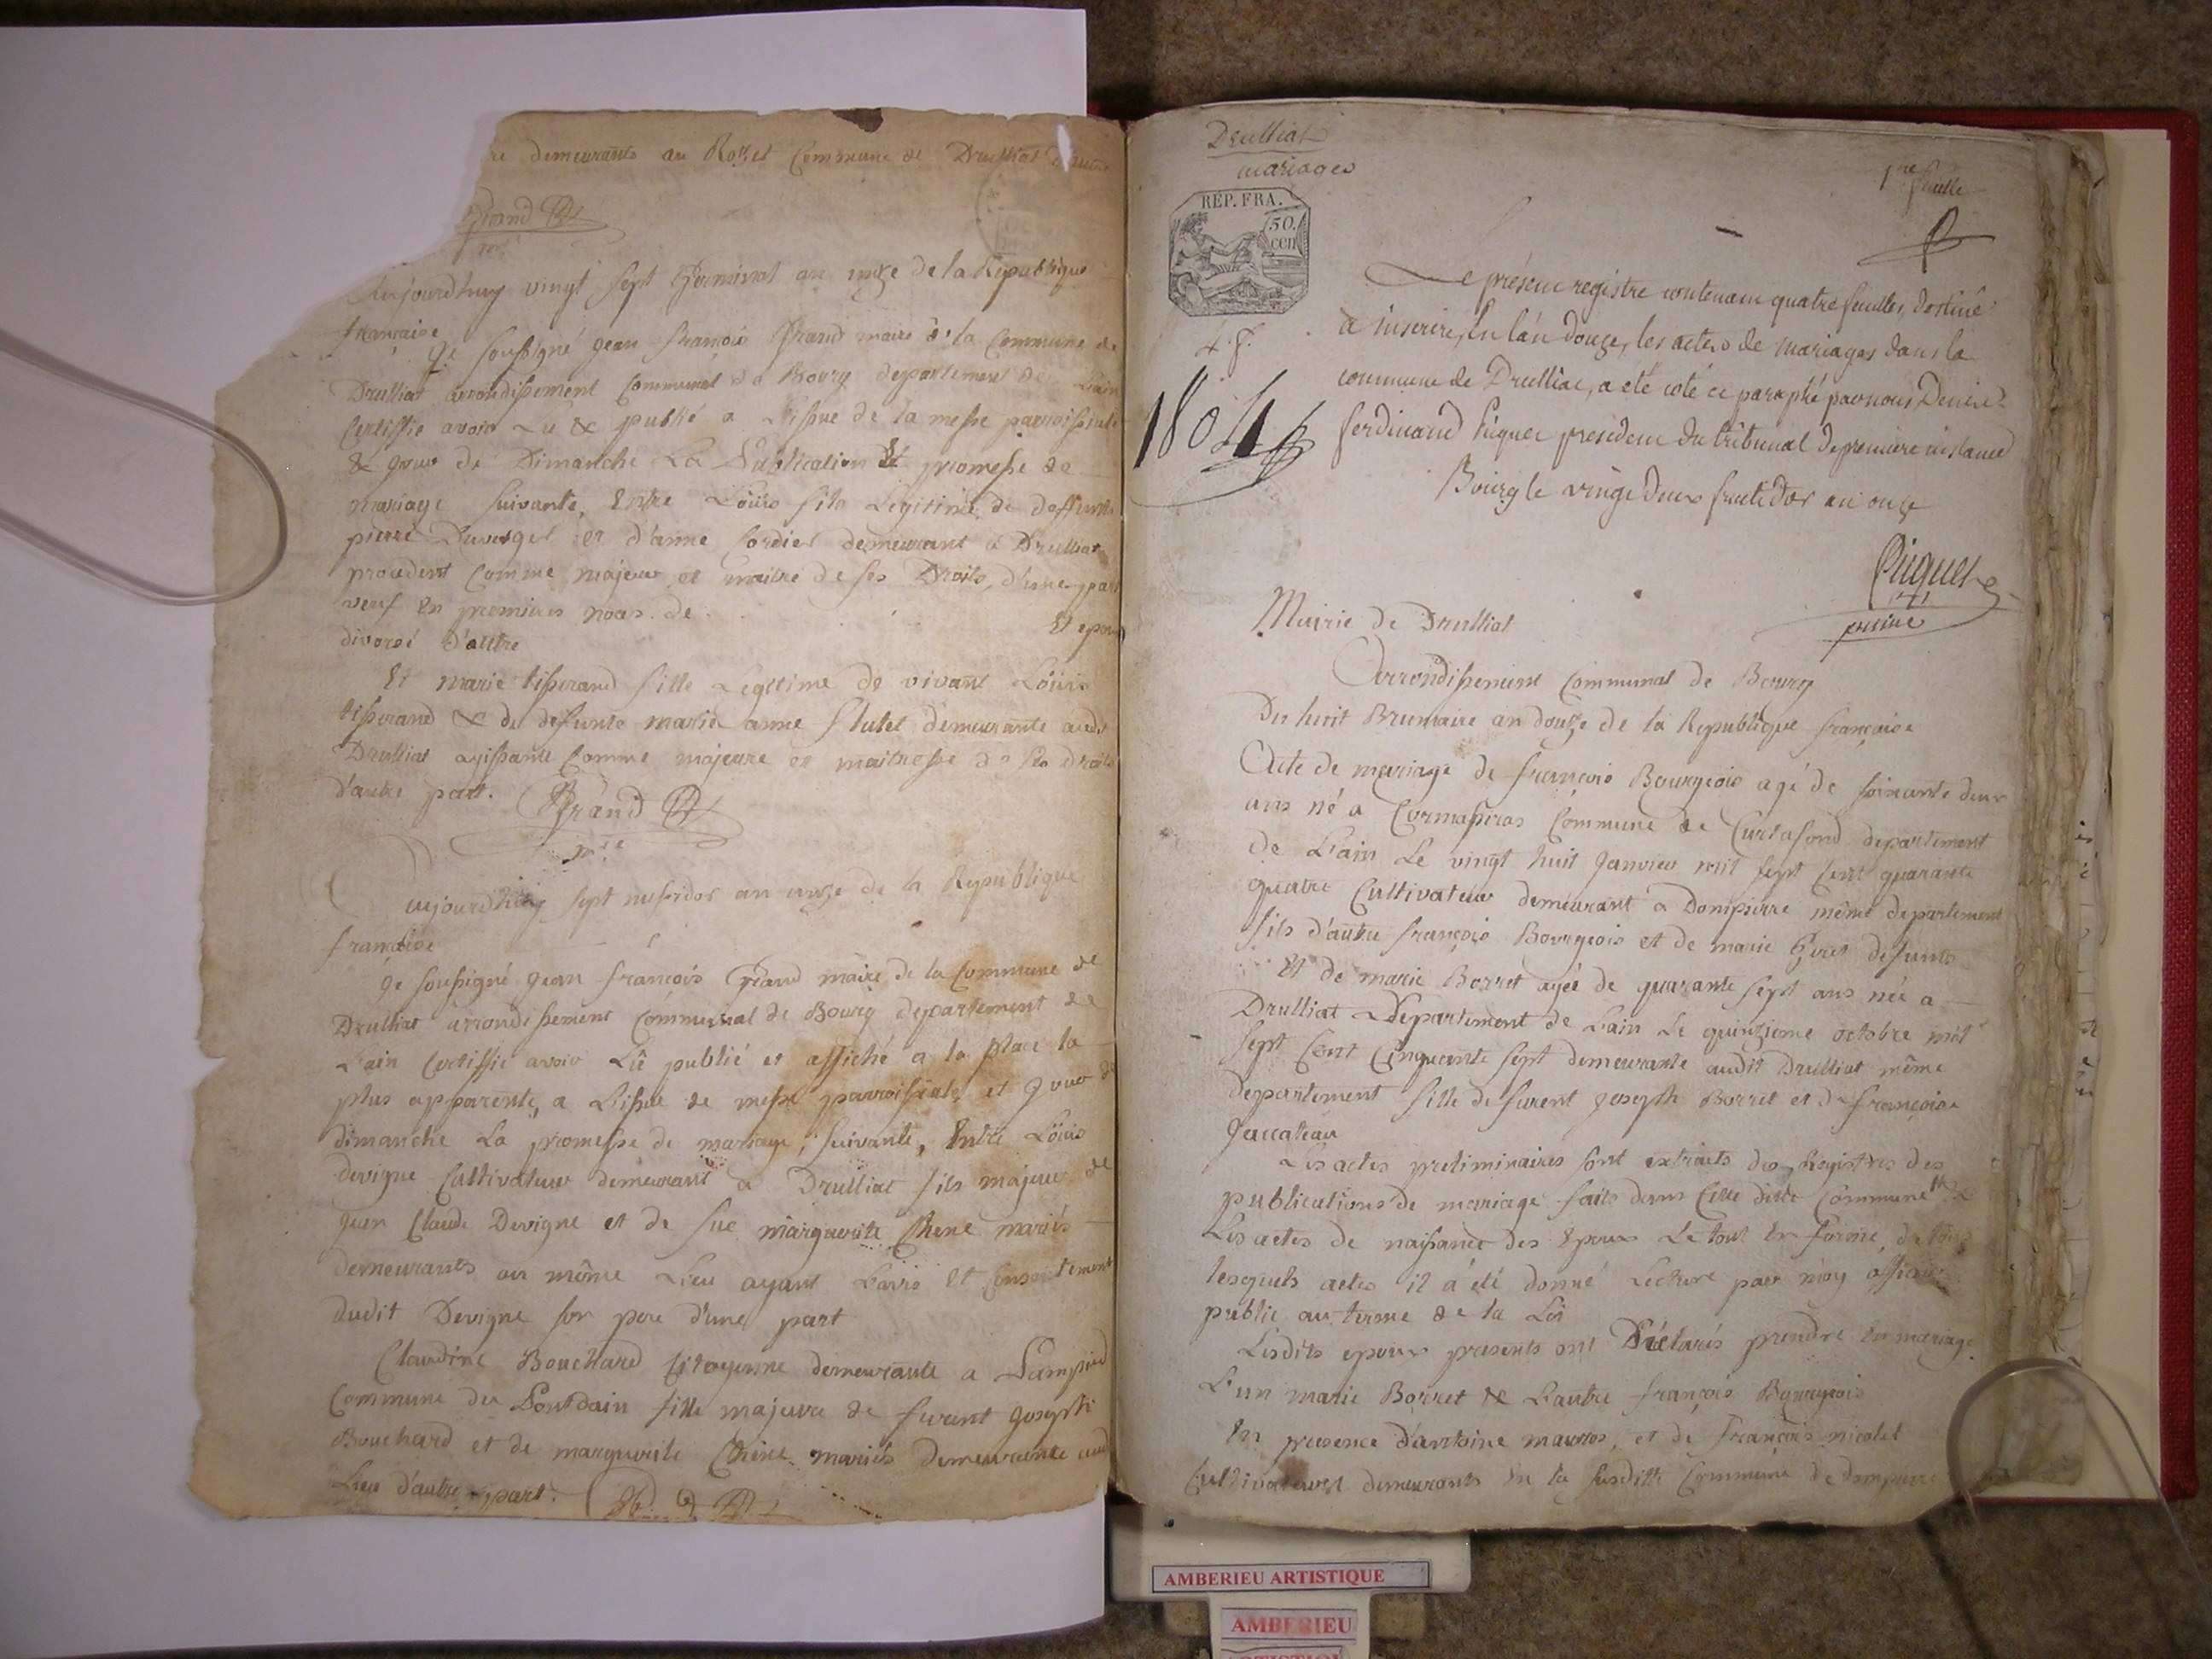 re demeurants au Rozet Commune de Drulliat d'autre
Grand
Aujourdhuy vingt sept Germinal an unze de la Republique
francaise
Je soussigné jean françois Grand maire de la Commune de
Drulliat arrondissement Communal de Bourg departement de Lain
Certiffie avoir Lu & publié a Lissue de la messe parroissiale
& jour de Dimanche La Publication Et promesse de
mariage suivante, Entre Loüis fils Legitime de deffunt
pierre et d'anne Cordier demeurant a Drulliat
procedent Comme majeur et maitre de ses Droits, d'une part
veuf En premieres noces de Et epoux
divorcé d'autre
Et marie tisserand fille Legitime de vivant Loüis
tisserand & de defunte marie anne demeurante audit
Drulliat agissante Comme majeure et maitresse de ses droits
d'autre part. Grand
Aujourdhuy sept messidor an unze de la Republique
francoise
Je soussigné jean françois Grand maire de la Commune de
Drulliat arrondissement Communal de Bourg departement de
Lain Certiffie avoir Lû publié et affiché a la place la
plus apparente, a Lissue de messe parroissiale, et jour de
dimanche La promesse de mariage, suivante, Entre Loüis
devigne Cultivateur demeurant a Drulliat fils majeur de
jean Claude Devigne et de fue marguerite Chene mariés
demeurants au même Lieu ayant Lavis Et Consentement
dudit Devigne son pere d'une part
Claudine Bouchard Citoyenne demeurante a
Commune du Pontdain fille majeure de furent joseph
Bouchard et de marguerite Chene mariés demeurante aud
Lieu d'autre part.
Drulliat
mariages
1re feuille
REP. FRA.
50.
cen
4 f.
1804
Le présent registre contenant quatre feuilles, destiné
a inscrire, En l'an douze, les actes de mariages dans la
commune de Drulliat, a eté coté et paraphé par nous Denis
ferdinand Piquet president du tribunal de premiere instance
Bourg le vingt deux fructidor an onze
Piquet
Mairie de Drulliat
Arrondissement Communal de Bourg
Du huit Brumaire an douze de la Republique françoise
Acte de mariage de françois Bourgeois agé de soixante deux
ans né a Cormasseras Commune de Curtafond departement
de Lain Le vingt huit janvier mil sept Cent quarante
quatre Cultivateur demeurant a Dompierre même departement
fils d'autre françois Bourgeois et de marie defunts
Et de marie Borret agée de quarante sept ans née a
Drulliat Departement de Lain Le quinzieme octobre mil
sept Cent Cinquante sept demeurante audit Drulliat même
departement fille de furent joseph Borret et de françoise
Les actes preliminaires sont extraits des Registres des
publications de mariage faits dans Cette ditte Commune
Les actes de naissance des Epoux Le tout En forme, de tous
lesquels actes il a été donné Lecture par moy officier
public au terme de la Loi
Lesdits epoux presents ont Déclarés prendre En mariage
L'un marie Borret & Lautre françois Bourgeois
En presence d'antoine et de françois nicolet
Cultivateurs demeurants En la susditte Commune de dompierre
AMBERIEU ARTISTIQUE
AMBERIEU